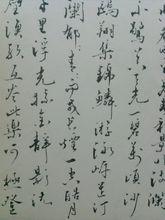 不驚上下天光一碧萬頃沙
鷗翔集錦鱗游泳岸芷汀
蘭郁々青々而或長煙一空皓月
千里浮光躍金靜影沉
璧漁歌互答此樂何極登